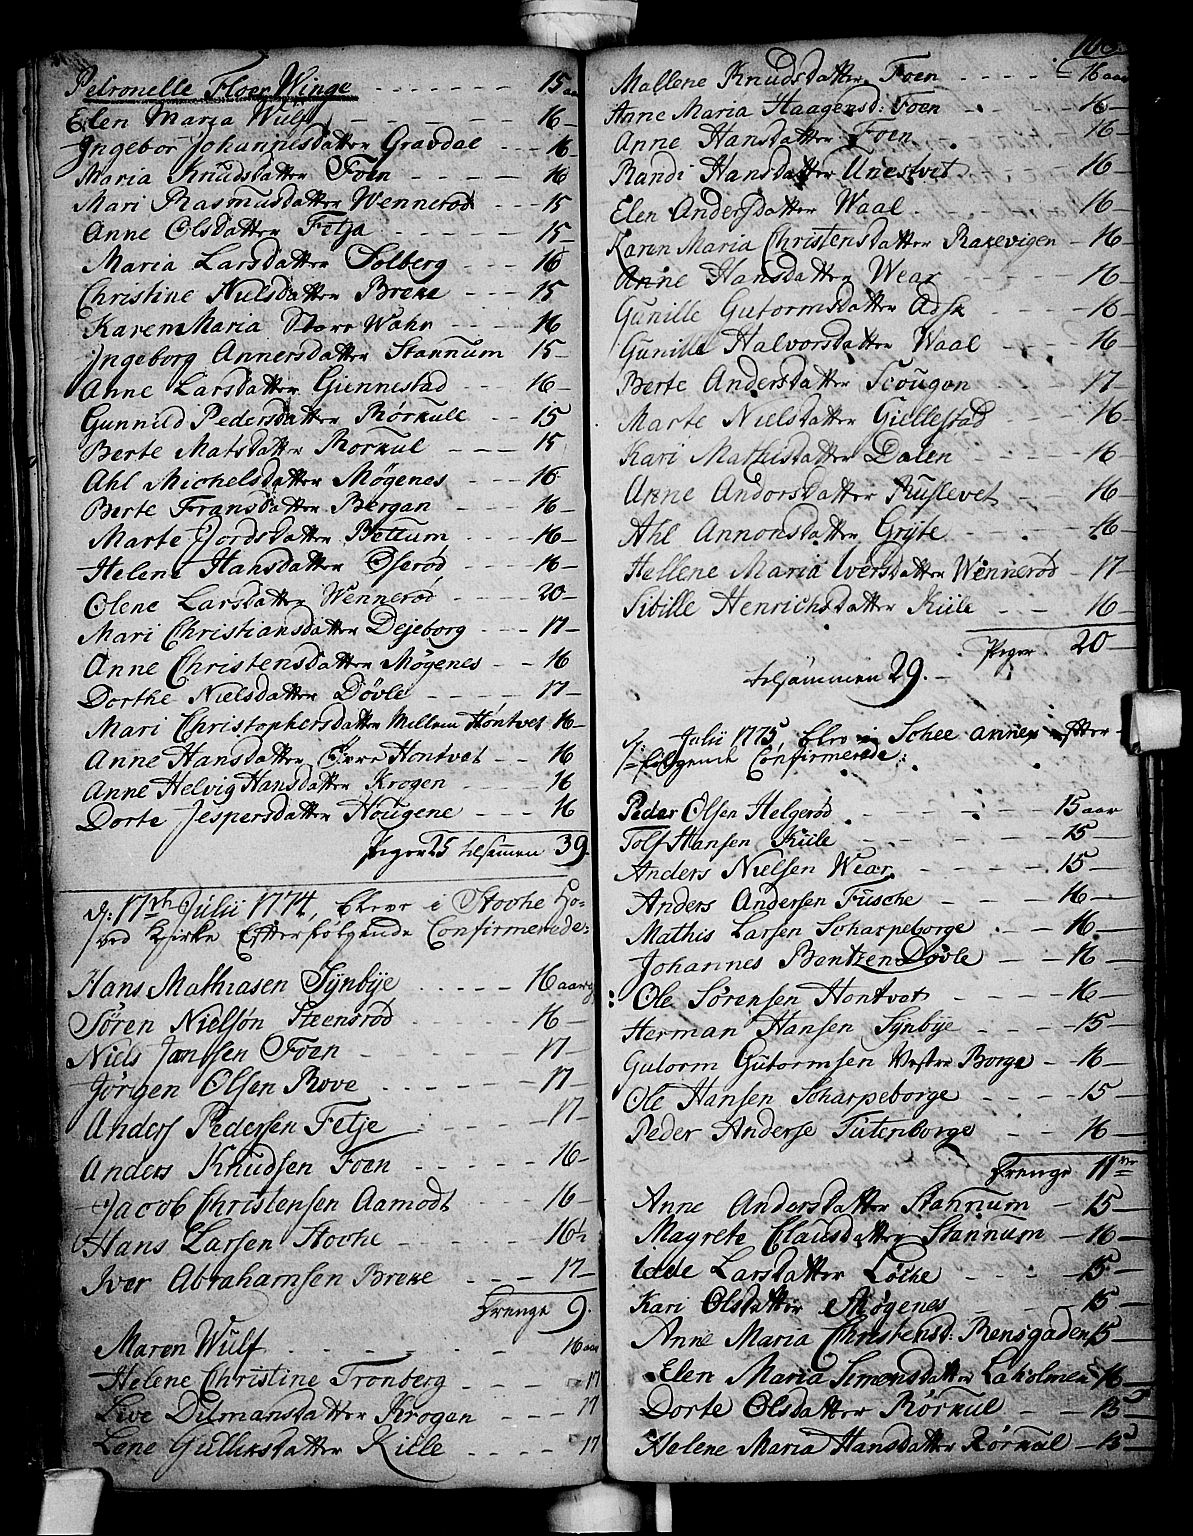 Petronelle Floer Winge - - - - 15 aar
Elen Maria Wulf - - - - 16 -
Ingebor Johannisdatter Gravdal - - - 16 -
Maria Knudsdatter Foen - - - - 16
Mari Rasmusdatter Wennerød - - - 15
Anne Olsdatter Fetja - - - - 15 -
Maria Larsdatter Solberg - - - 16
Christine Nielsdatter Breke - - - 15
Karen Maria Store Wahr - - - 16
Ingeborg Annersdatter Stannum 15 -
Anne Larsdatter Giennestad - - - 16 -
Gunnild Pedersdatter Rørkull - - 15
Berte Matsdatter Rorkul - - - 15
Ahl Michelsdatter Møgenes - - - 16
Berte Fransdatter Bergan - - - 16 -
Marte Jordsdatter Bettum - - - 16 -
Helene Hansdatter Oserød - - - 16 -
Olene Larsdatter Wennerød - - - 20 -
Mari Christiansdatter Dejeborg - - - 17 -
Anne Christensdatter Møgenes - - 16
Dorthe Nielsdatter Døvle - - - - 17 -
Mari Christophersdatter Mellem Hontvet 16 -
Anne Hansdatter Øvre Hontvet - - 16
Anne Helvig Hansdatter Krogen - - - 16
Dorte Jespersdatter Hougene - - - 16
Piger 25 tilsammen 39
d: 17de Julii 1774, bleve i Stokke Ho-
ved Kjirke Efterfølgende Confirmerede:
Hans Mathiasen Synbye - - - - 16 aar
Sören Nielsøn Steensrod - - - - 16 -
Niels Janssen Foen - - - - 17 -
Jørgen Olsen Rove - - - - 17 -
Anders Pedersen Fetje - - - - 17 -
Anders Knudsen Foen - - - - 16 -
Jacob Christensen Aamodt - - - 16 -
Hans Larsen Stokke - - - - 16½
Iver Abrahamsen Breke - - - 17 -
Drenge 9.
Maren Wulf - - - - 16 aar
Helene Christine Tronberg - - - 17
Live Ditmansdatter Krogen - - - 17
Lene Gulliksdatter Kille - - - - 17
Mallene Knudsdatter Foen - - - - 16 aar
Anne Maria Haagensd: Foen - - 16 -
Anne Hansdatter Foen - - 16 -
Randi Hansdatter Unesvet - - - 16 -
Elen Andersdatter Waal - - - - 16 -
Karen Maria Christensdatter Rakevigen - 16 -
Anne Hansdatter Wear - - - - 16 -
Gunille Gutormsdatter Adsk - - - 16 -
Gunille Halvorsdatter Waal - - - 16 -
Berte Andersdatter Scougen - - - 17 -
Marte Nielsdatter Giellestad - - - 16 -
Kari Mathisdatter Dalen - - - 16 -
Anne Andorsdatter Ruslevet - - - 16 -
Ahl Annonsdatter Gryte - - - - 16 -
Hellene Maria Iversdatter Wennerød - 17 -
Sibille Henrichsdatter Kiile - - - 16 -
Piger 20
tilsammen 29. -
Julii 1775, blev i Schee annex efter
følgende Confirmerede:
Peder Olsen Helgerød - - - 15 aar
Tolf Hansen Kiile - - - - 15 -
Anders Nielsen Wear - - - - 15 -
Anders Andersen Fusche - - - 16 -
Mathis Larsen Scharpeborge - - - 16 -
Johannes Bentzen Døvle - - - 16 -
Ole Sørensen Hontvet - - - - 16 -
Herman Hansen Synbye - - - - 15 -
Gutorm Gutormsen Vestre Borge - - 16 -
Ole Hansen Scharpeborge - - - - 15 -
Peder Anderse Tutenborge - - - 16 -
Drenge 11
Anne Andersdatter Stannum - - 15 -
Magrete Clausdatter Stannum - 16 -
Idde Larsdatter Løcke - - - 15 -
Kari Olsdatter Møgenes - - - 15 -
Anne Maria Christensd. Rensgaden 15 -
Elen Maria Simensdatter Laholmen 16 -
Dorte Olsdatter Rørkul - - - 15
Helene Maria Hansdatter Rørkul - 15